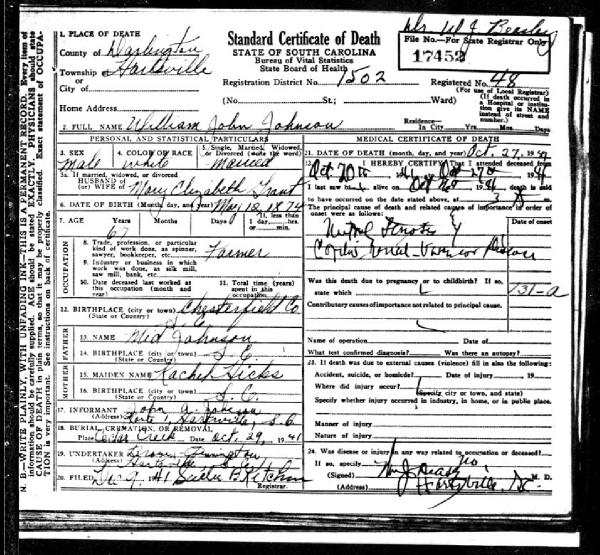 Standard Certificate of Death
STATE OF SOUTH CAROLINA
Bureau of Vital Statistics
State Board of Health
File No.—For State Registrar Only
17452
1. PLACE OF DEATH
County of Darlington
Township of Hartsville
or
City of
Registration District No. 1502
Registered No. 48
(For use of Local Registrar)
(If death occurred in a Hospital or institution give its NAME instead of street and number.)
(No. St.; Ward)
Home Address
Residence—In City Yrs. Mos. Days
2. FULL NAME William John Johnson
PERSONAL AND STATISTICAL PARTICULARS
3. SEX male
4. COLOR OR RACE white
5. Single, Married, Widowed, or Divorced (write the word) Married
5a. If married, widowed, or divorced
HUSBAND of
(or) WIFE of Mary Elizabeth Grant
6. DATE OF BIRTH (Month, day, year) May 18, 1874
7. AGE Years 67 Months Days If less than 1 day, hrs. or min.
OCCUPATION
8. Trade, profession, or particular kind of work done, as spinner, sawyer, bookkeeper, etc. Farmer
9. Industry or business in which work was done, as silk mill, saw mill, bank, etc.
10. Date deceased last worked at this occupation (month and year)
11. Total time (years) spent in this occupation
12. BIRTHPLACE (city or town) Chesterfield Co
(State or Country) S. C.
FATHER
13. NAME Med Johnson
14. BIRTHPLACE (city or town) S. C.
(State or Country)
MOTHER
15. MAIDEN NAME Rachel Hicks
16. BIRTHPLACE (city or town) S. C.
(State or Country)
17. INFORMANT John A. Johnson
(Address) Route 1, Hartsville, S. C.
18. BURIAL, CREMATION, OR REMOVAL
Place Cedar Creek Date Oct. 29, 1941
19. UNDERTAKER
(Address) Hartsville
20. FILED Dec 9, 1941
Registrar.
MEDICAL CERTIFICATE OF DEATH
21. DATE OF DEATH (month, day, and year) Oct. 27, 1941
22. I HEREBY CERTIFY, That I attended deceased from
Oct 20th 41, to Oct 27th 1941
I last saw h alive on Oct 1941, death is said
to have occurred on the date stated above, at 3 m.
The principal cause of death and related causes of importance in order of onset were as follows:
Date of onset
Was this death due to pregnancy or to childbirth? If so, state which
131-a
Contributory causes of importance not related to principal cause.
Name of operation Date of
What test confirmed diagnosis? Was there an autopsy?
23. If death was due to external causes (violence) fill in also the following:
Accident, suicide, or homicide? Date of injury 19
Where did injury occur?
(Specify city or town, and state)
Specify whether injury occurred in industry, in home, or in public place.
Manner of injury
Nature of injury
24. Was disease or injury in any way related to occupation or deceased?
If so, specify no.
(Signed) M. D.
(Address) Hartsville, S.C.
N. B.—WRITE PLAINLY, WITH UNFADING INK—THIS IS A PERMANENT RECORD. Every item of information should be carefully supplied. AGE should be stated EXACTLY. PHYSICIANS should state CAUSE OF DEATH in plain terms, so that it may be properly classified. Exact statement of OCCUPATION is very important. See instructions on back of certificate.